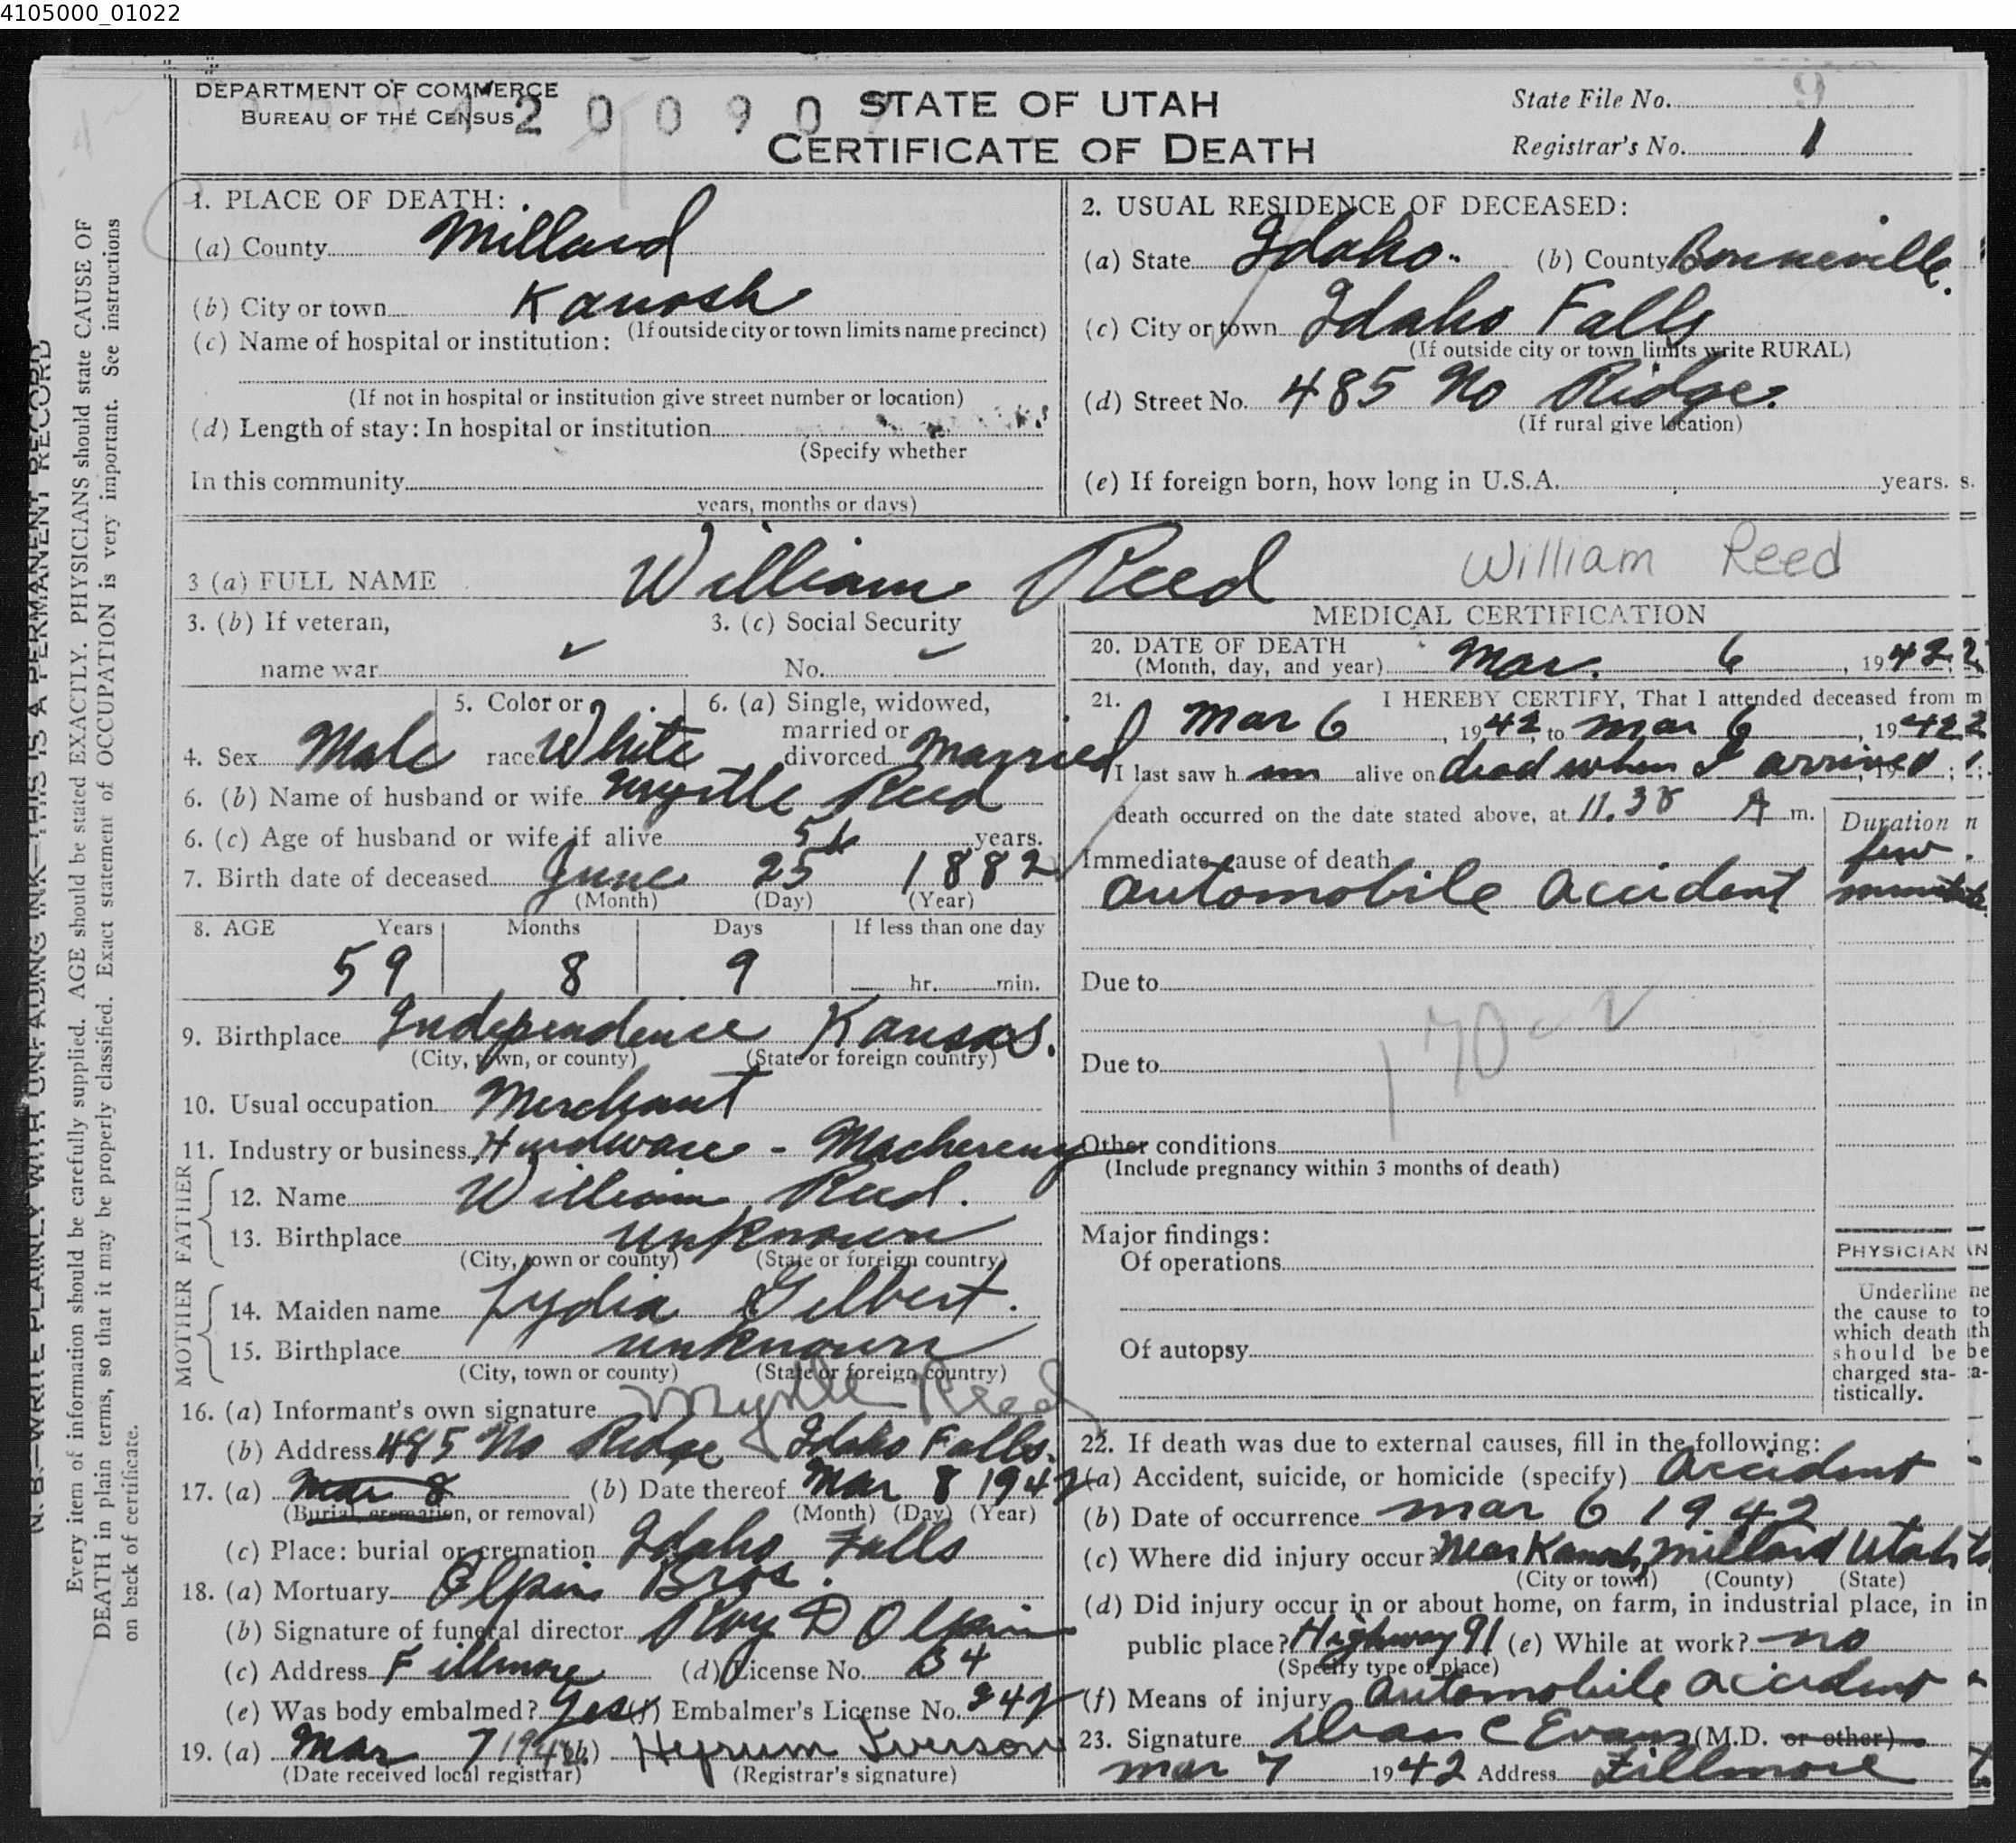 4105000_01022
DEPARTMENT OF COMMERCE
BUREAU OF THE CENSUS
2 0 0 9 0
STATE OF UTAH
CERTIFICATE OF DEATH
State File No. 9
Registrar's No. 1
1. PLACE OF DEATH:
(a) County Millard
(b) City or town Kanosh
(If outside city or town limits name precinct)
(c) Name of hospital or institution:
(If not in hospital or institution give street number or location)
(d) Length of stay: In hospital or institution
(Specify whether
In this community
years, months or days)
2. USUAL RESIDENCE OF DECEASED:
(a) State Idaho. (b) County Bonneville.
(c) City or town Idaho Falls
(If outside city or town limits write RURAL)
(d) Street No. 485 No Ridge.
(If rural give location)
(e) If foreign born, how long in U.S.A. years. s.
3 (a) FULL NAME William Reed William Reed
3. (b) If veteran,
name war ✓
3. (c) Social Security
No. ✓
4. Sex Male
5. Color or
race White
6. (a) Single, widowed,
married or
divorced Married
6. (b) Name of husband or wife Myrtle Reed
6. (c) Age of husband or wife if alive years.
7. Birth date of deceased June 25 1882
(Month) (Day) (Year)
8. AGE Years Months Days If less than one day
59 8 9 hr. min.
9. Birthplace Independence Kansas.
(City, town, or county) (State or foreign country)
10. Usual occupation Merchant
11. Industry or business Hardware - Machereny
FATHER
12. Name William Reed.
13. Birthplace unknown
(City, town or county) (State or foreign country)
MOTHER
14. Maiden name Lydia Gilbert.
15. Birthplace unknown
(City, town or county) (State or foreign country)
16. (a) Informant's own signature Myrtle Reed
(b) Address 485 No Ridge Idaho Falls.
17. (a) Mar 8 (b) Date thereof Mar 8 1942
(Burial, cremation, or removal) (Month) (Day) (Year)
(c) Place: burial or cremation Idaho Falls
18. (a) Mortuary Olpin Bros.
(b) Signature of funeral director Roy D Olpin
(c) Address Fillmore (d) License No. 34
(e) Was body embalmed? Yes (f) Embalmer's License No. 242
19. (a) Mar 7 1942 (b) Hyrum Iverson
(Date received local registrar) (Registrar's signature)
MEDICAL CERTIFICATION
20. DATE OF DEATH
(Month, day, and year) Mar. 6, 1942
21. I HEREBY CERTIFY, That I attended deceased from m
Mar 6, 1942, to Mar 6, 1942
I last saw h im alive on dead when I arrived, 19
death occurred on the date stated above, at 11.38 A m.
Duration n
Immediate cause of death few
automobile accident minutes
Due to
170c-2
Due to
Other conditions
(Include pregnancy within 3 months of death)
Major findings:
Of operations
Of autopsy
PHYSICIAN
Underline
the cause to
which death
should be
charged sta-
tistically.
22. If death was due to external causes, fill in the following:
(a) Accident, suicide, or homicide (specify) Accident
(b) Date of occurrence Mar 6 1942
(c) Where did injury occur? Near Kanosh, Millard Utah
(City or town) (County) (State)
(d) Did injury occur in or about home, on farm, in industrial place, in in
public place? Highway 91 (e) While at work? no
(Specify type of place)
(f) Means of injury automobile accident
23. Signature Dean C Evans (M.D. or other)
Mar 7 1942 Address Fillmore
N. B.—WRITE PLAINLY WITH UNFADING INK—THIS IS A PERMANENT RECORD
Every item of information should be carefully supplied. AGE should be stated EXACTLY. PHYSICIANS should state CAUSE OF
DEATH in plain terms, so that it may be properly classified. Exact statement of OCCUPATION is very important. See instructions
on back of certificate.